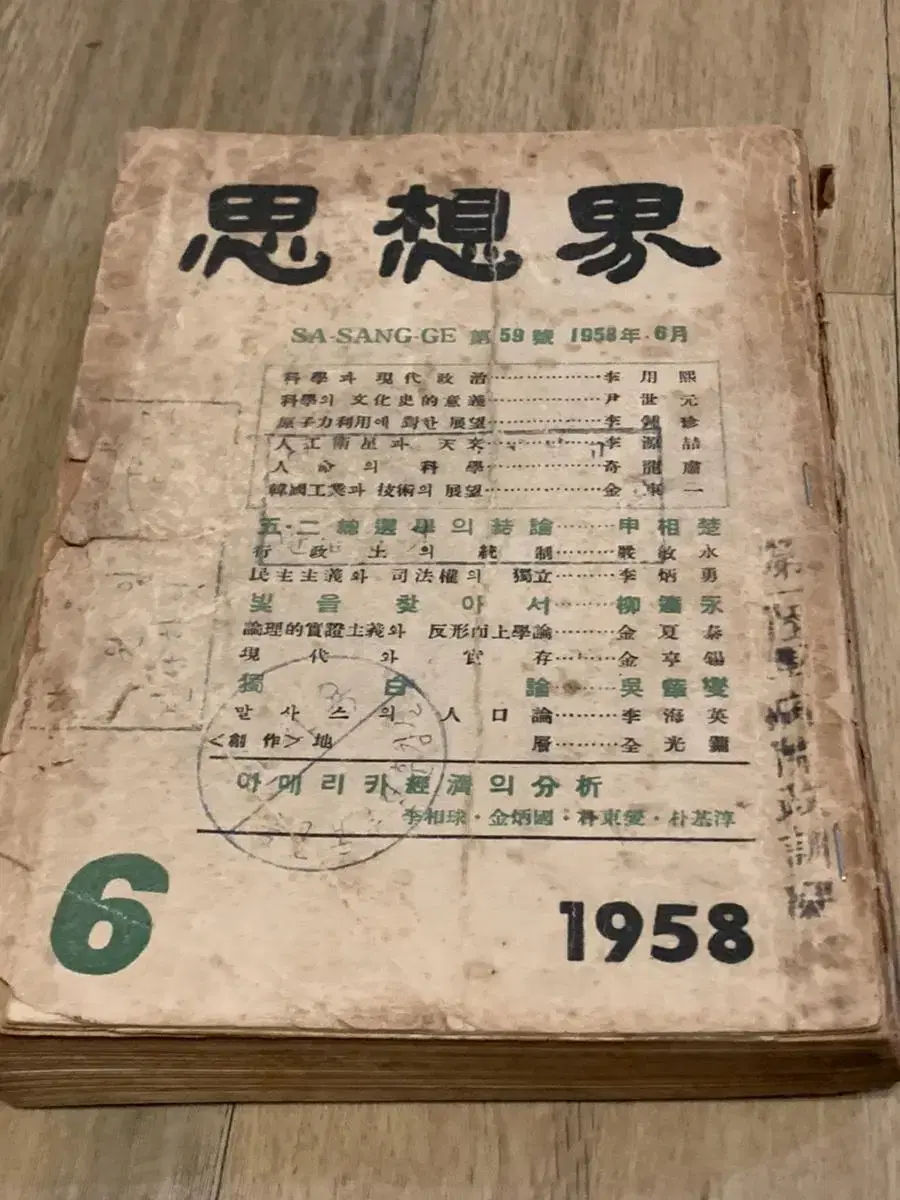 思想界
SA-SANG-GE 第59號 1958年·6月
科學과 現代政治………………李用熙
科學의 文化史的意義………………尹世元
原子力利用에 對한 展望………………李鍾珍
人工衛星과 天文………………李源喆
人命의 科學………………奇龍肅
韓國工業과 技術의 展望………………金東一
五·二總選擧의 結論………申相楚
行政上의 統制………嚴敏永
民主主義와 司法權의 獨立………李炳勇
빛을 찾아서………柳
論理的實證主義와 反形而上學論………金夏泰
現代와 實存………金亨錫
獨白論………吳
말사스의 人口論………李海英
<創作>地層………全光鏞
아메리카經濟의 分析
李相球·金炳國·朴東燮·朴基淳
6
1958
第一陸軍病院政訓